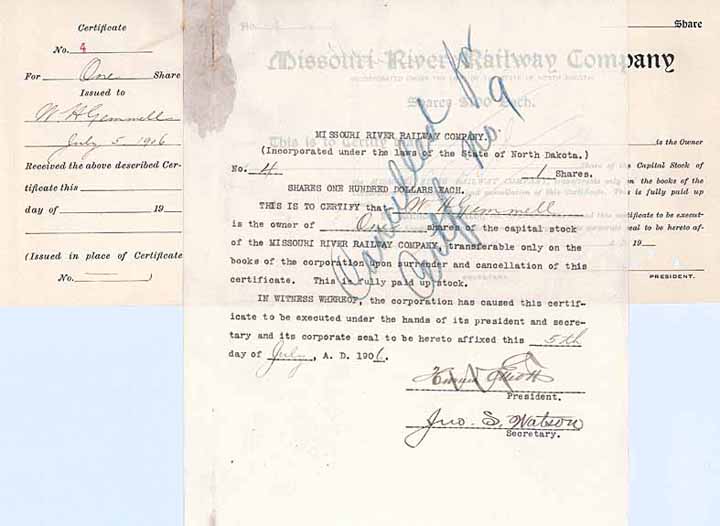 Certificate
No. 4
For One Share
Issued to
W. H. Gemmell
July 5, 1906
Received the above described Cer-
tificate this
day of 19
(Issued in place of Certificate
No. )
Share
Missouri River Railway Company
INCORPORATED UNDER THE LAWS OF THE STATE OF NORTH DAKOTA
Shares $100 Each.
This is to Certify that
is the Owner
Share of the Capital Stock of
on the books of the
is fully paid up
certificate to be execut-
seal to be hereto af-
19
PRESIDENT.
Cancelled for
Ctf No. 9
MISSOURI RIVER RAILWAY COMPANY.
(Incorporated under the laws of the State of North Dakota.)
No. 4 1 Shares.
SHARES ONE HUNDRED DOLLARS EACH.
THIS IS TO CERTIFY that W H Gemmell
is the owner of One shares of the capital stock
of the MISSOURI RIVER RAILWAY COMPANY, transferable only on the
books of the corporation upon surrender and cancellation of this
certificate. This is fully paid up stock.
IN WITNESS WHEREOF, the corporation has caused this certif-
icate to be executed under the hands of its president and secre-
tary and its corporate seal to be hereto affixed this 5th
day of July, A. D. 1906.
Howard Elliott
President.
Jno. S. Watson
Secretary.